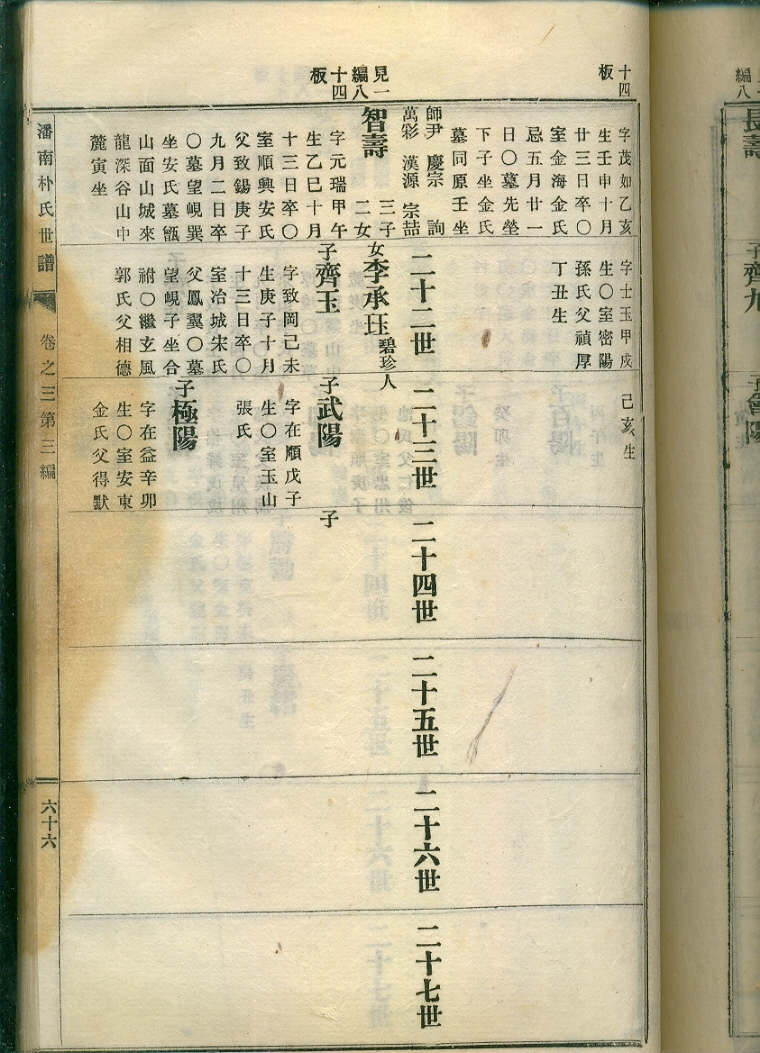 十四
板
字茂如乙亥
生壬申十月
廿三日卒〇
室金海金氏
忌五月廿一
日〇墓先塋
下子坐金氏
墓同原壬坐
師尹 慶宗 詢
萬彩 漢源 宗喆
見一
編八
十四
板
智壽
三子
二女
字元瑞甲午
生乙巳十月
十三日卒〇
室順興安氏
父致錫庚子
九月二日卒
〇墓望峴巽
坐安氏墓甑
山面山城來
龍深谷山中
麓寅坐
二十二世
字士玉甲戌
生〇室密陽
孫氏父禎厚
丁丑生
女李承珏
碧珍人
子齊玉
字致岡己未
生庚子十月
十三日卒〇
室冶城宋氏
父鳳翼〇墓
望峴子坐合
祔〇繼玄風
郭氏父相德
二十三世
己亥生
子武陽
字在順戊子
生〇室玉山
張氏
子極陽
字在益辛卯
生〇室安東
金氏父得默
二十四世
子
二十五世
二十六世
二十七世
潘南朴氏世譜
卷之三第三編
六十六
編八
長壽
子齊九